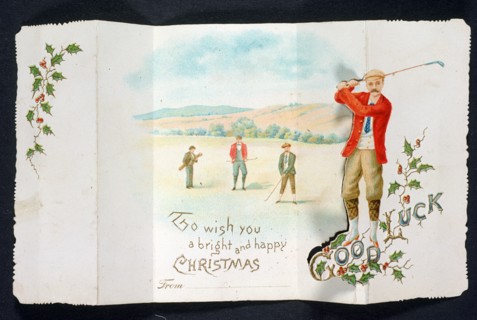 To wish you
a bright and happy
CHRISTMAS
From
GOOD LUCK